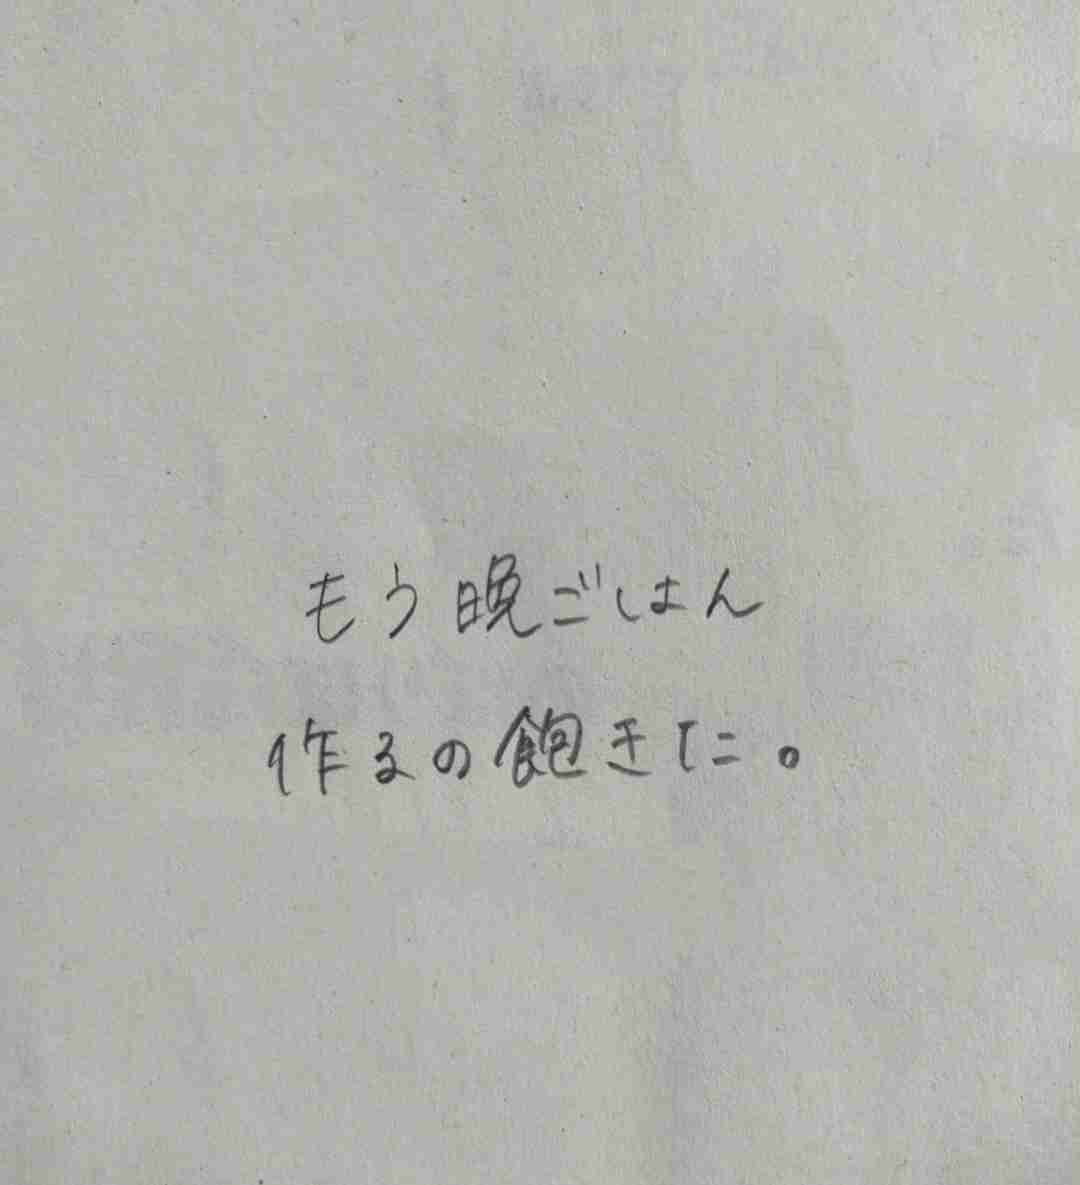 もう晩ごはん
作るの飽きた。